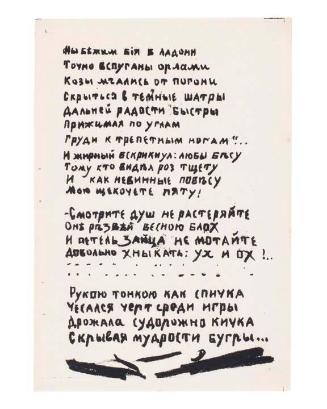 Мы бежим бія в ладони
Точно вспуганы орлами
Козы мчались от погони
Скрыться в темные шатры
Дальней радости быстры
Прижимая по углам
Груди к трепетным ногам"...
И жирный вскрикнул: любы бѣсу
Тому кто видѣл роз тщету
И как невинные повѣсу
Мою щекочете пяту!
-Смотрите душ не растеряйте
Онѣ рѣзвѣй весною блох
И петель зайца не мотайте
Довольно хныкать: ух и ох!..
Рукою тонкою как спичка
Чесался черт среди игры
Дрожала судорожно кичка
Скрывая мудрости бугры...